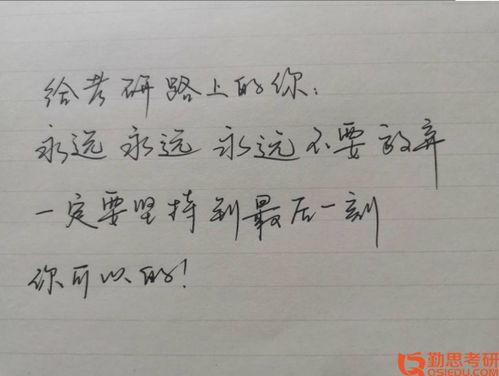 给考研路上的你：
永远 永远 永远不要放弃
一定要坚持到最后一刻
你可以的！
勤思考研
QSIEDU.COM